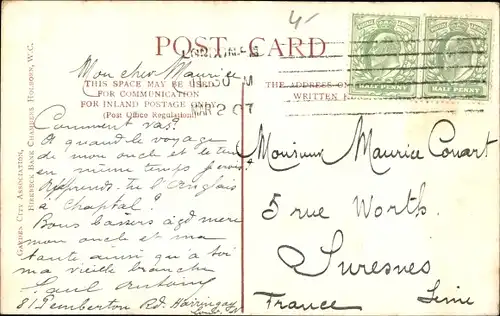 4-
POSTAGE POSTAGE
HALF PENNY HALF PENNY
POST CARD
MAR 2 07
THIS SPACE MAY BE USED
FOR COMMUNICATION
FOR INLAND POSTAGE ONLY.
(Post Office Regulation)
THE ADDRESS ON
WRITTEN
GARDEN CITY ASSOCIATION,
BIRKBECK BANK CHAMBERS, HOLBORN, W.C.
Mon cher Maurice
Comment vas?
A quand le voyage
de mon oncle et le tien
en même temps
Apprends-tu l'Anglais
à Chaptal?
Bons baisers à gd mere
mon oncle et ma
tante ainsi qu'à toi
ma vieille branche
Paul Antoine
81 Pemberton Rd. Harringay
London N
Monsieur Maurice Conart
5 rue Worth.
Suresnes
France Seine